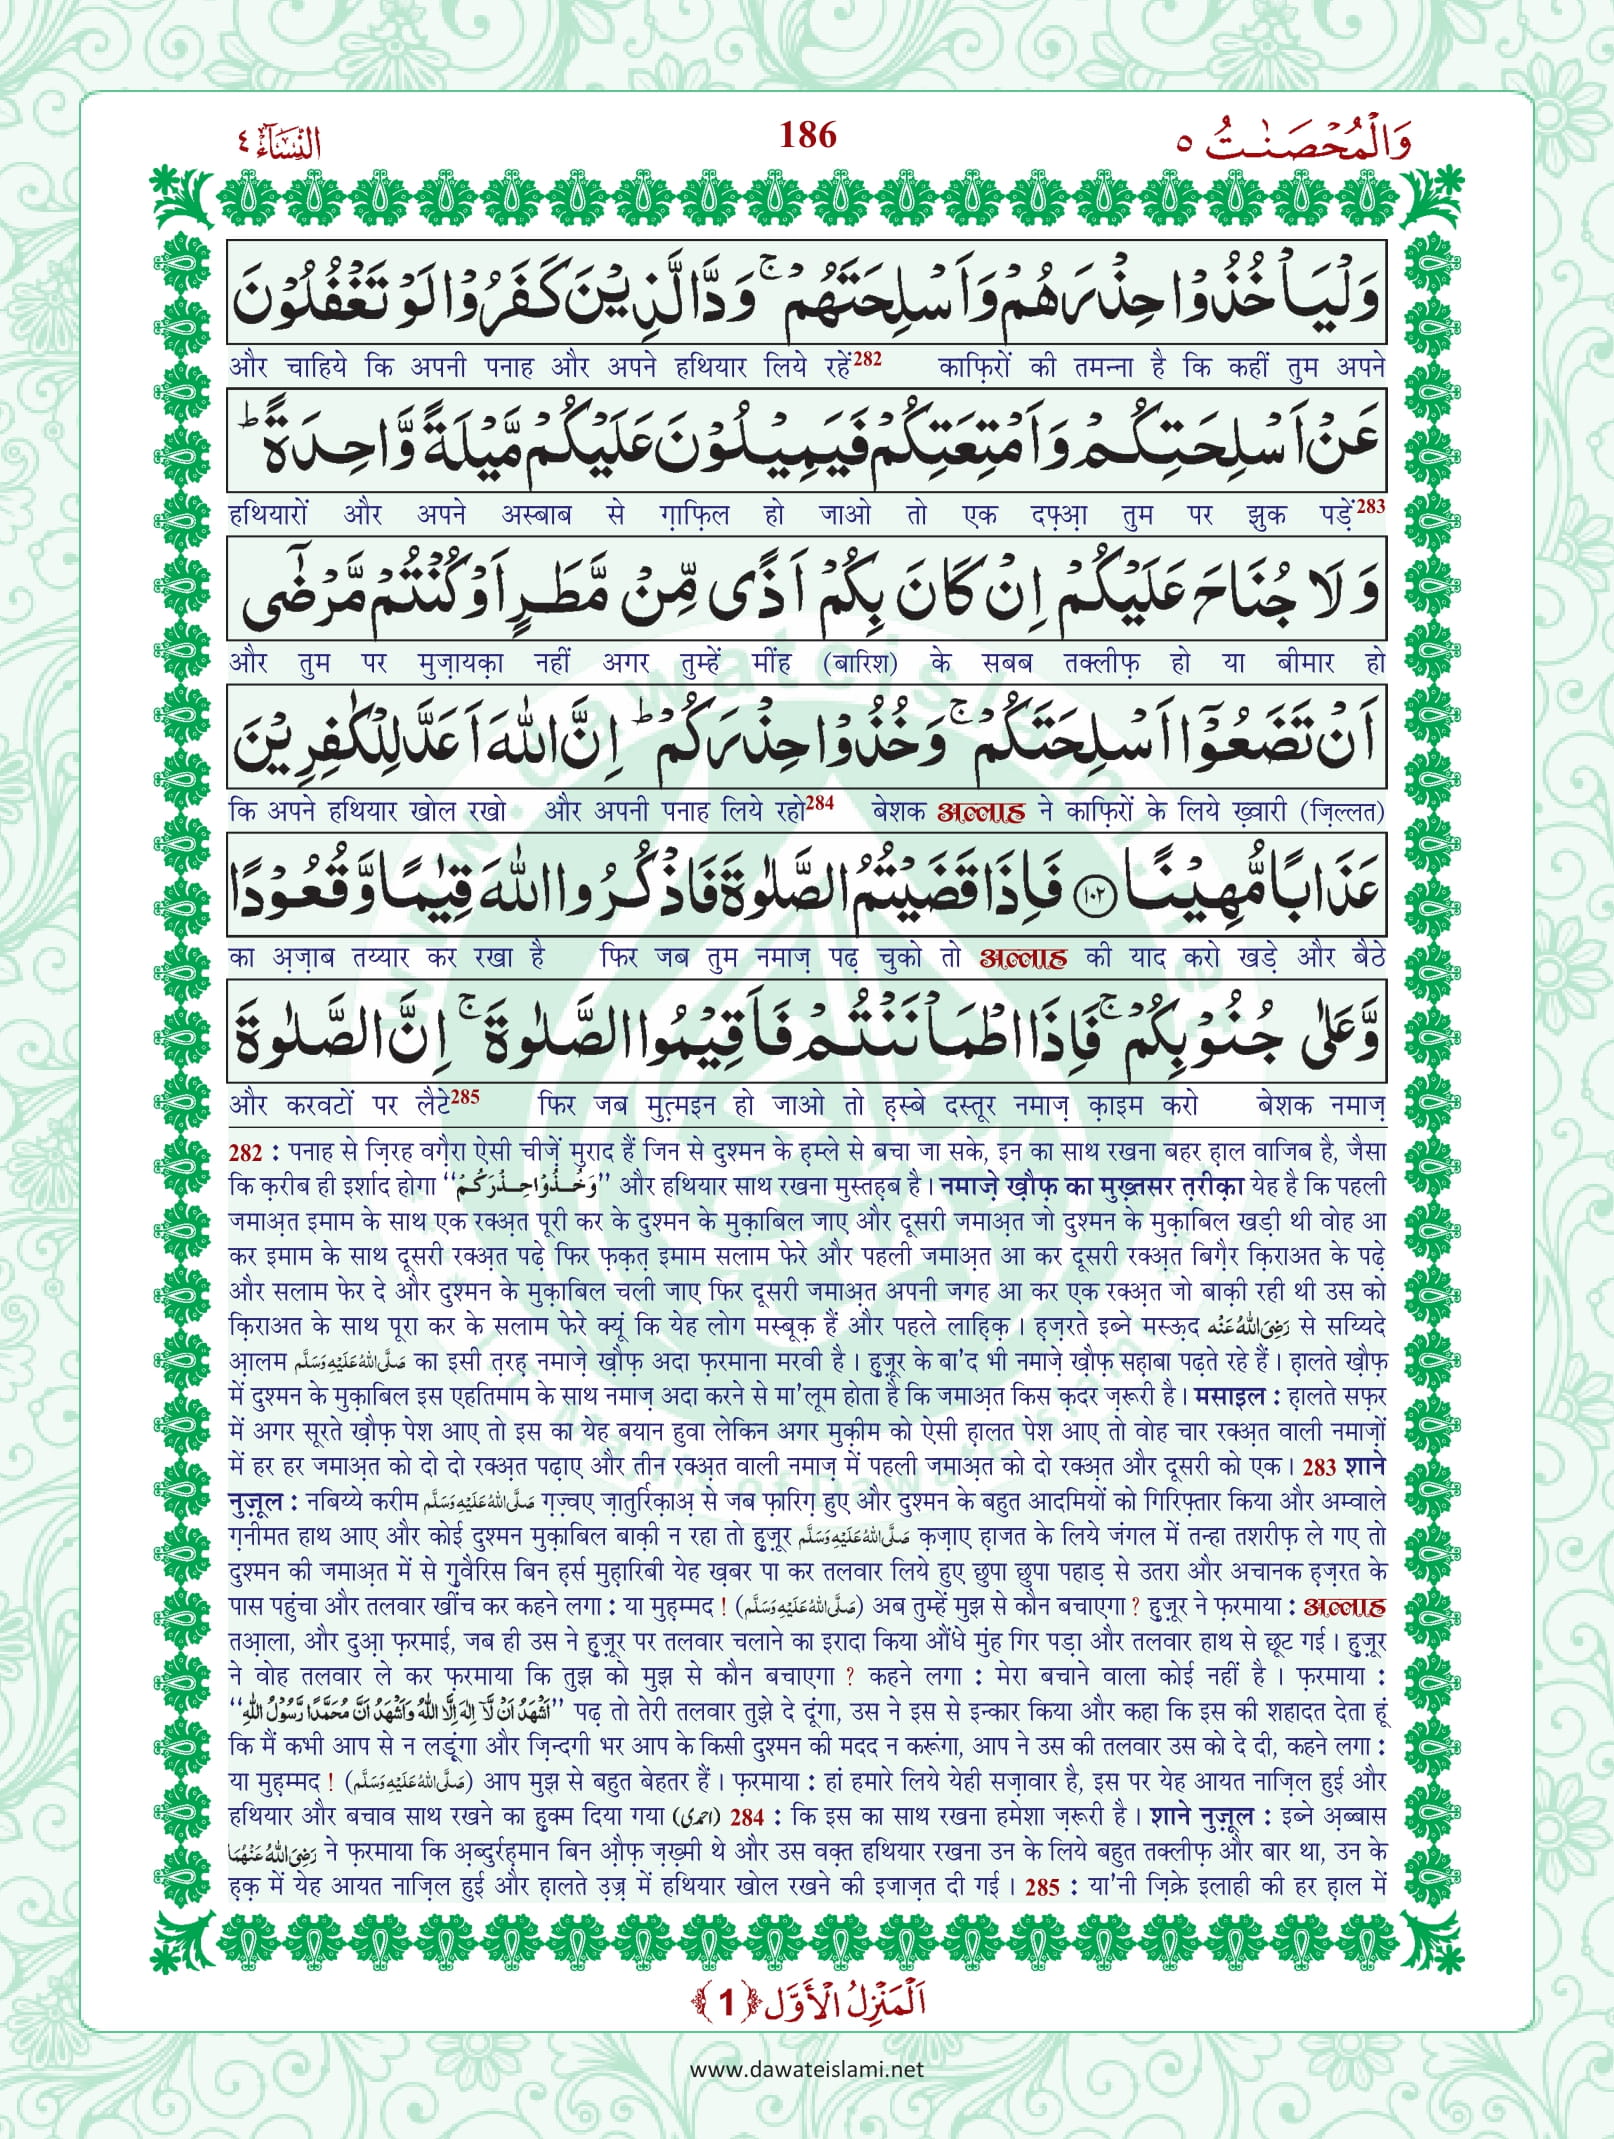 وَالْمُحْصَنٰتُ ٥
186
النِّسَآء ٤
وَلْيَاْخُذُوْا حِذْرَهُمْ وَاَسْلِحَتَهُمْ ۚ وَدَّ الَّذِيْنَ كَفَرُوْا لَوْ تَغْفُلُوْنَ
और चाहिये कि अपनी पनाह और अपने हथियार लिये रहें282 काफ़िरों की तमन्ना है कि कहीं तुम अपने
عَنْ اَسْلِحَتِكُمْ وَاَمْتِعَتِكُمْ فَيَمِيْلُوْنَ عَلَيْكُمْ مَّيْلَةً وَّاحِدَةً ؕ
हथियारों और अपने अस्बाब से ग़ाफ़िल हो जाओ तो एक दफ़्आ़ तुम पर झुक पड़ें283
وَلَا جُنَاحَ عَلَيْكُمْ اِنْ كَانَ بِكُمْ اَذًى مِّنْ مَّطَرٍ اَوْ كُنْتُمْ مَّرْضٰۤى
और तुम पर मुज़ायक़ा नहीं अगर तुम्हें मींह (बारिश) के सबब तक्लीफ़ हो या बीमार हो
اَنْ تَضَعُوْۤا اَسْلِحَتَكُمْ ۚ وَخُذُوْا حِذْرَكُمْ ؕ اِنَّ اللّٰهَ اَعَدَّ لِلْكٰفِرِيْنَ
कि अपने हथियार खोल रखो और अपनी पनाह लिये रहो284 बेशक अल्लाह ने काफ़िरों के लिये ख़्वारी (ज़िल्लत)
عَذَابًا مُّهِيْنًا ۝١٠٢ فَاِذَا قَضَيْتُمُ الصَّلٰوةَ فَاذْكُرُوا اللّٰهَ قِيٰمًا وَّقُعُوْدًا
का अ़ज़ाब तय्यार कर रखा है फिर जब तुम नमाज़ पढ़ चुको तो अल्लाह की याद करो खड़े और बैठे
وَّعَلٰى جُنُوْبِكُمْ ۚ فَاِذَا اطْمَاْنَنْتُمْ فَاَقِيْمُوا الصَّلٰوةَ ۚ اِنَّ الصَّلٰوةَ
और करवटों पर लैटे285 फिर जब मुत़्मइन हो जाओ तो ह़स्बे दस्तूर नमाज़ क़ाइम करो बेशक नमाज़
282 : पनाह से ज़िरह वग़ैरा ऐसी चीज़ें मुराद हैं जिन से दुश्मन के ह़म्ले से बचा जा सके, इन का साथ रखना बहर ह़ाल वाजिब है, जैसा
कि क़रीब ही इर्शाद होगा ‘‘وَخُذُوْا حِذْرَكُمْ’’ और हथियार साथ रखना मुस्तह़ब है। नमाज़े ख़ौफ़ का मुख़्तसर त़रीक़ा येह है कि पहली
जमाअ़त इमाम के साथ एक रक्अ़त पूरी कर के दुश्मन के मुक़ाबिल जाए और दूसरी जमाअ़त जो दुश्मन के मुक़ाबिल खड़ी थी वोह आ
कर इमाम के साथ दूसरी रक्अ़त पढ़े फिर फ़क़त़ इमाम सलाम फेरे और पहली जमाअ़त आ कर दूसरी रक्अ़त बिग़ैर क़िराअत के पढ़े
और सलाम फेर दे और दुश्मन के मुक़ाबिल चली जाए फिर दूसरी जमाअ़त अपनी जगह आ कर एक रक्अ़त जो बाक़ी रही थी उस को
क़िराअत के साथ पूरा कर के सलाम फेरे क्यूं कि येह लोग मस्बूक़ हैं और पहले लाह़िक़। ह़ज़रते इब्ने मस्ऊ़द رَضِىَ اللّٰهُ عَنْه से सय्यिदे
आ़लम صَلَّى اللّٰهُ عَلَيْهِ وَسَلَّم का इसी त़रह़ नमाज़े ख़ौफ़ अदा फ़रमाना मरवी है। हुज़ूर के बा'द भी नमाज़े ख़ौफ़ सह़ाबा पढ़ते रहे हैं। ह़ालते ख़ौफ़
में दुश्मन के मुक़ाबिल इस एहतिमाम के साथ नमाज़ अदा करने से मा'लूम होता है कि जमाअ़त किस क़दर ज़रूरी है। मसाइल : ह़ालते सफ़र
में अगर सूरते ख़ौफ़ पेश आए तो इस का येह बयान हुवा लेकिन अगर मुक़ीम को ऐसी ह़ालत पेश आए तो वोह चार रक्अ़त वाली नमाज़ों
में हर हर जमाअ़त को दो दो रक्अ़त पढ़ाए और तीन रक्अ़त वाली नमाज़ में पहली जमाअ़त को दो रक्अ़त और दूसरी को एक। 283 शाने
नुज़ूल : नबिय्ये करीम صَلَّى اللّٰهُ عَلَيْهِ وَسَلَّم ग़ज़्वए ज़ातुर्रिक़ाअ़ से जब फ़ारिग़ हुए और दुश्मन के बहुत आदमियों को गिरिफ़्तार किया और अम्वाले
ग़नीमत हाथ आए और कोई दुश्मन मुक़ाबिल बाक़ी न रहा तो हुज़ूर صَلَّى اللّٰهُ عَلَيْهِ وَسَلَّم क़ज़ाए ह़ाजत के लिये जंगल में तन्हा तशरीफ़ ले गए तो
दुश्मन की जमाअ़त में से गुवैरिस बिन ह़र्स मुह़ारिबी येह ख़बर पा कर तलवार लिये हुए छुपा छुपा पहाड़ से उतरा और अचानक ह़ज़रत के
पास पहुंचा और तलवार खींच कर कहने लगा : या मुह़म्मद ! (صَلَّى اللّٰهُ عَلَيْهِ وَسَلَّم) अब तुम्हें मुझ से कौन बचाएगा ? हुज़ूर ने फ़रमाया : अल्लाह
तआ़ला, और दुआ़ फ़रमाई, जब ही उस ने हुज़ूर पर तलवार चलाने का इरादा किया औंधे मुंह गिर पड़ा और तलवार हाथ से छूट गई। हुज़ूर
ने वोह तलवार ले कर फ़रमाया कि तुझ को मुझ से कौन बचाएगा ? कहने लगा : मेरा बचाने वाला कोई नहीं है। फ़रमाया :
‘‘اَشْهَدُ اَنْ لَّآ اِلٰهَ اِلَّا اللّٰهُ وَاَشْهَدُ اَنَّ مُحَمَّدًا رَّسُوْلُ اللّٰهِ’’ पढ़ तो तेरी तलवार तुझे दे दूंगा, उस ने इस से इन्कार किया और कहा कि इस की शहादत देता हूं
कि मैं कभी आप से न लड़ूंगा और ज़िन्दगी भर आप के किसी दुश्मन की मदद न करूंगा, आप ने उस की तलवार उस को दे दी, कहने लगा :
या मुह़म्मद ! (صَلَّى اللّٰهُ عَلَيْهِ وَسَلَّم) आप मुझ से बहुत बेहतर हैं। फ़रमाया : हां हमारे लिये येही सज़ावार है, इस पर येह आयत नाज़िल हुई और
हथियार और बचाव साथ रखने का हुक्म दिया गया (احمدى) 284 : कि इस का साथ रखना हमेशा ज़रूरी है। शाने नुज़ूल : इब्ने अ़ब्बास
رَضِىَ اللّٰهُ عَنْهُمَا ने फ़रमाया कि अ़ब्दुर्रह़मान बिन औ़फ़ ज़ख़्मी थे और उस वक़्त हथियार रखना उन के लिये बहुत तक्लीफ़ और बार था, उन के
ह़क़ में येह आयत नाज़िल हुई और ह़ालते उ़ज़्र में हथियार खोल रखने की इजाज़त दी गई। 285 : या'नी ज़िक्रे इलाही की हर ह़ाल में
اَلْمَنْزِلُ الْاَوَّل ﴿1﴾
www.dawateislami.net